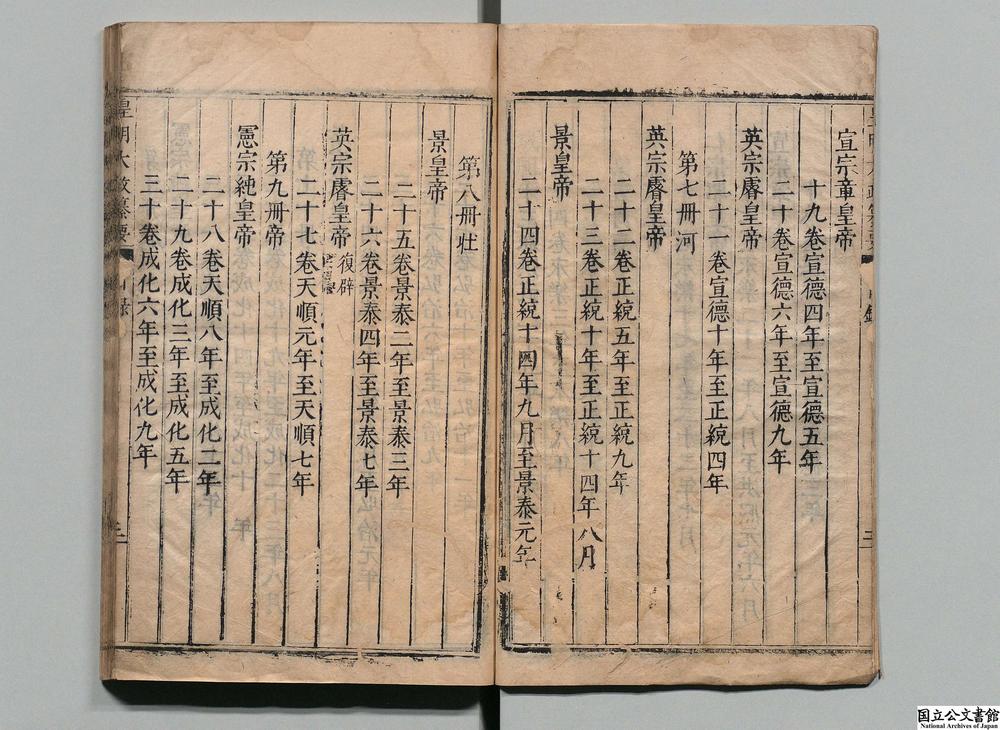 宣宗章皇帝
十九卷宣德四年至宣德五年
二十卷宣德六年至宣德九年
英宗睿皇帝
二十一卷宣德十年至正統四年
第七冊河
英宗睿皇帝
二十二卷正統五年至正統九年
二十三卷正統十年至正統十四年八月
景皇帝
二十四卷正統十四年九月至景泰元年
第八冊壯
景皇帝
二十五卷景泰二年至景泰三年
二十六卷景泰四年至景泰七年
英宗睿皇帝復辟
二十七卷天順元年至天順七年
第九冊帝
憲宗純皇帝
二十八卷天順八年至成化二年
二十九卷成化三年至成化五年
三十卷成化六年至成化九年
皇明大政纂要
国立公文書館
National Archives of Japan